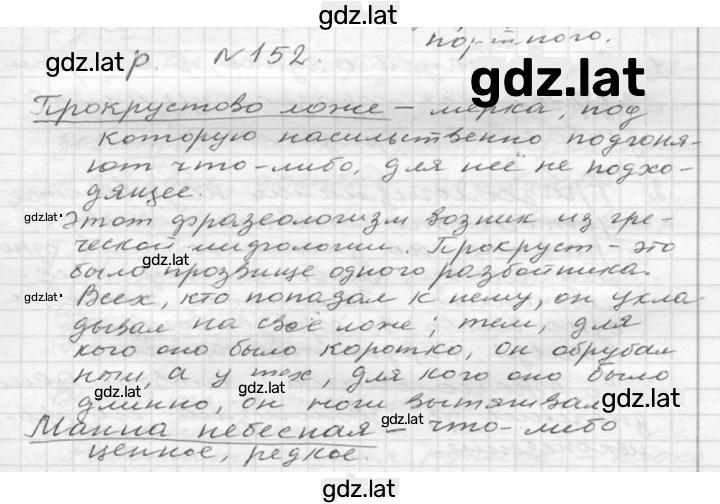 gdz.lat
портного.
gdz.lat р. №152. gdz.lat
Прокрустово ложе – мерка, под
которую насильственно подгоня-
ют что-либо, для неё не подхо-
дящее.
gdz.lat Этот фразеологизм возник из гре-
ческой мифологии. Прокруст – это
gdz.lat
было прозвище одного разбойника.
gdz.lat Всех, кто попадал к нему, он укла-
дывал на своё ложе; тем, для
кого оно было коротко, он обрубал
ноги, а у тех, для кого оно было
gdz.lat gdz.lat
длинно, он ноги вытягивал. gdz.lat
Манна небесная – gdz.lat что-либо
ценное, редкое.
gdz.lat